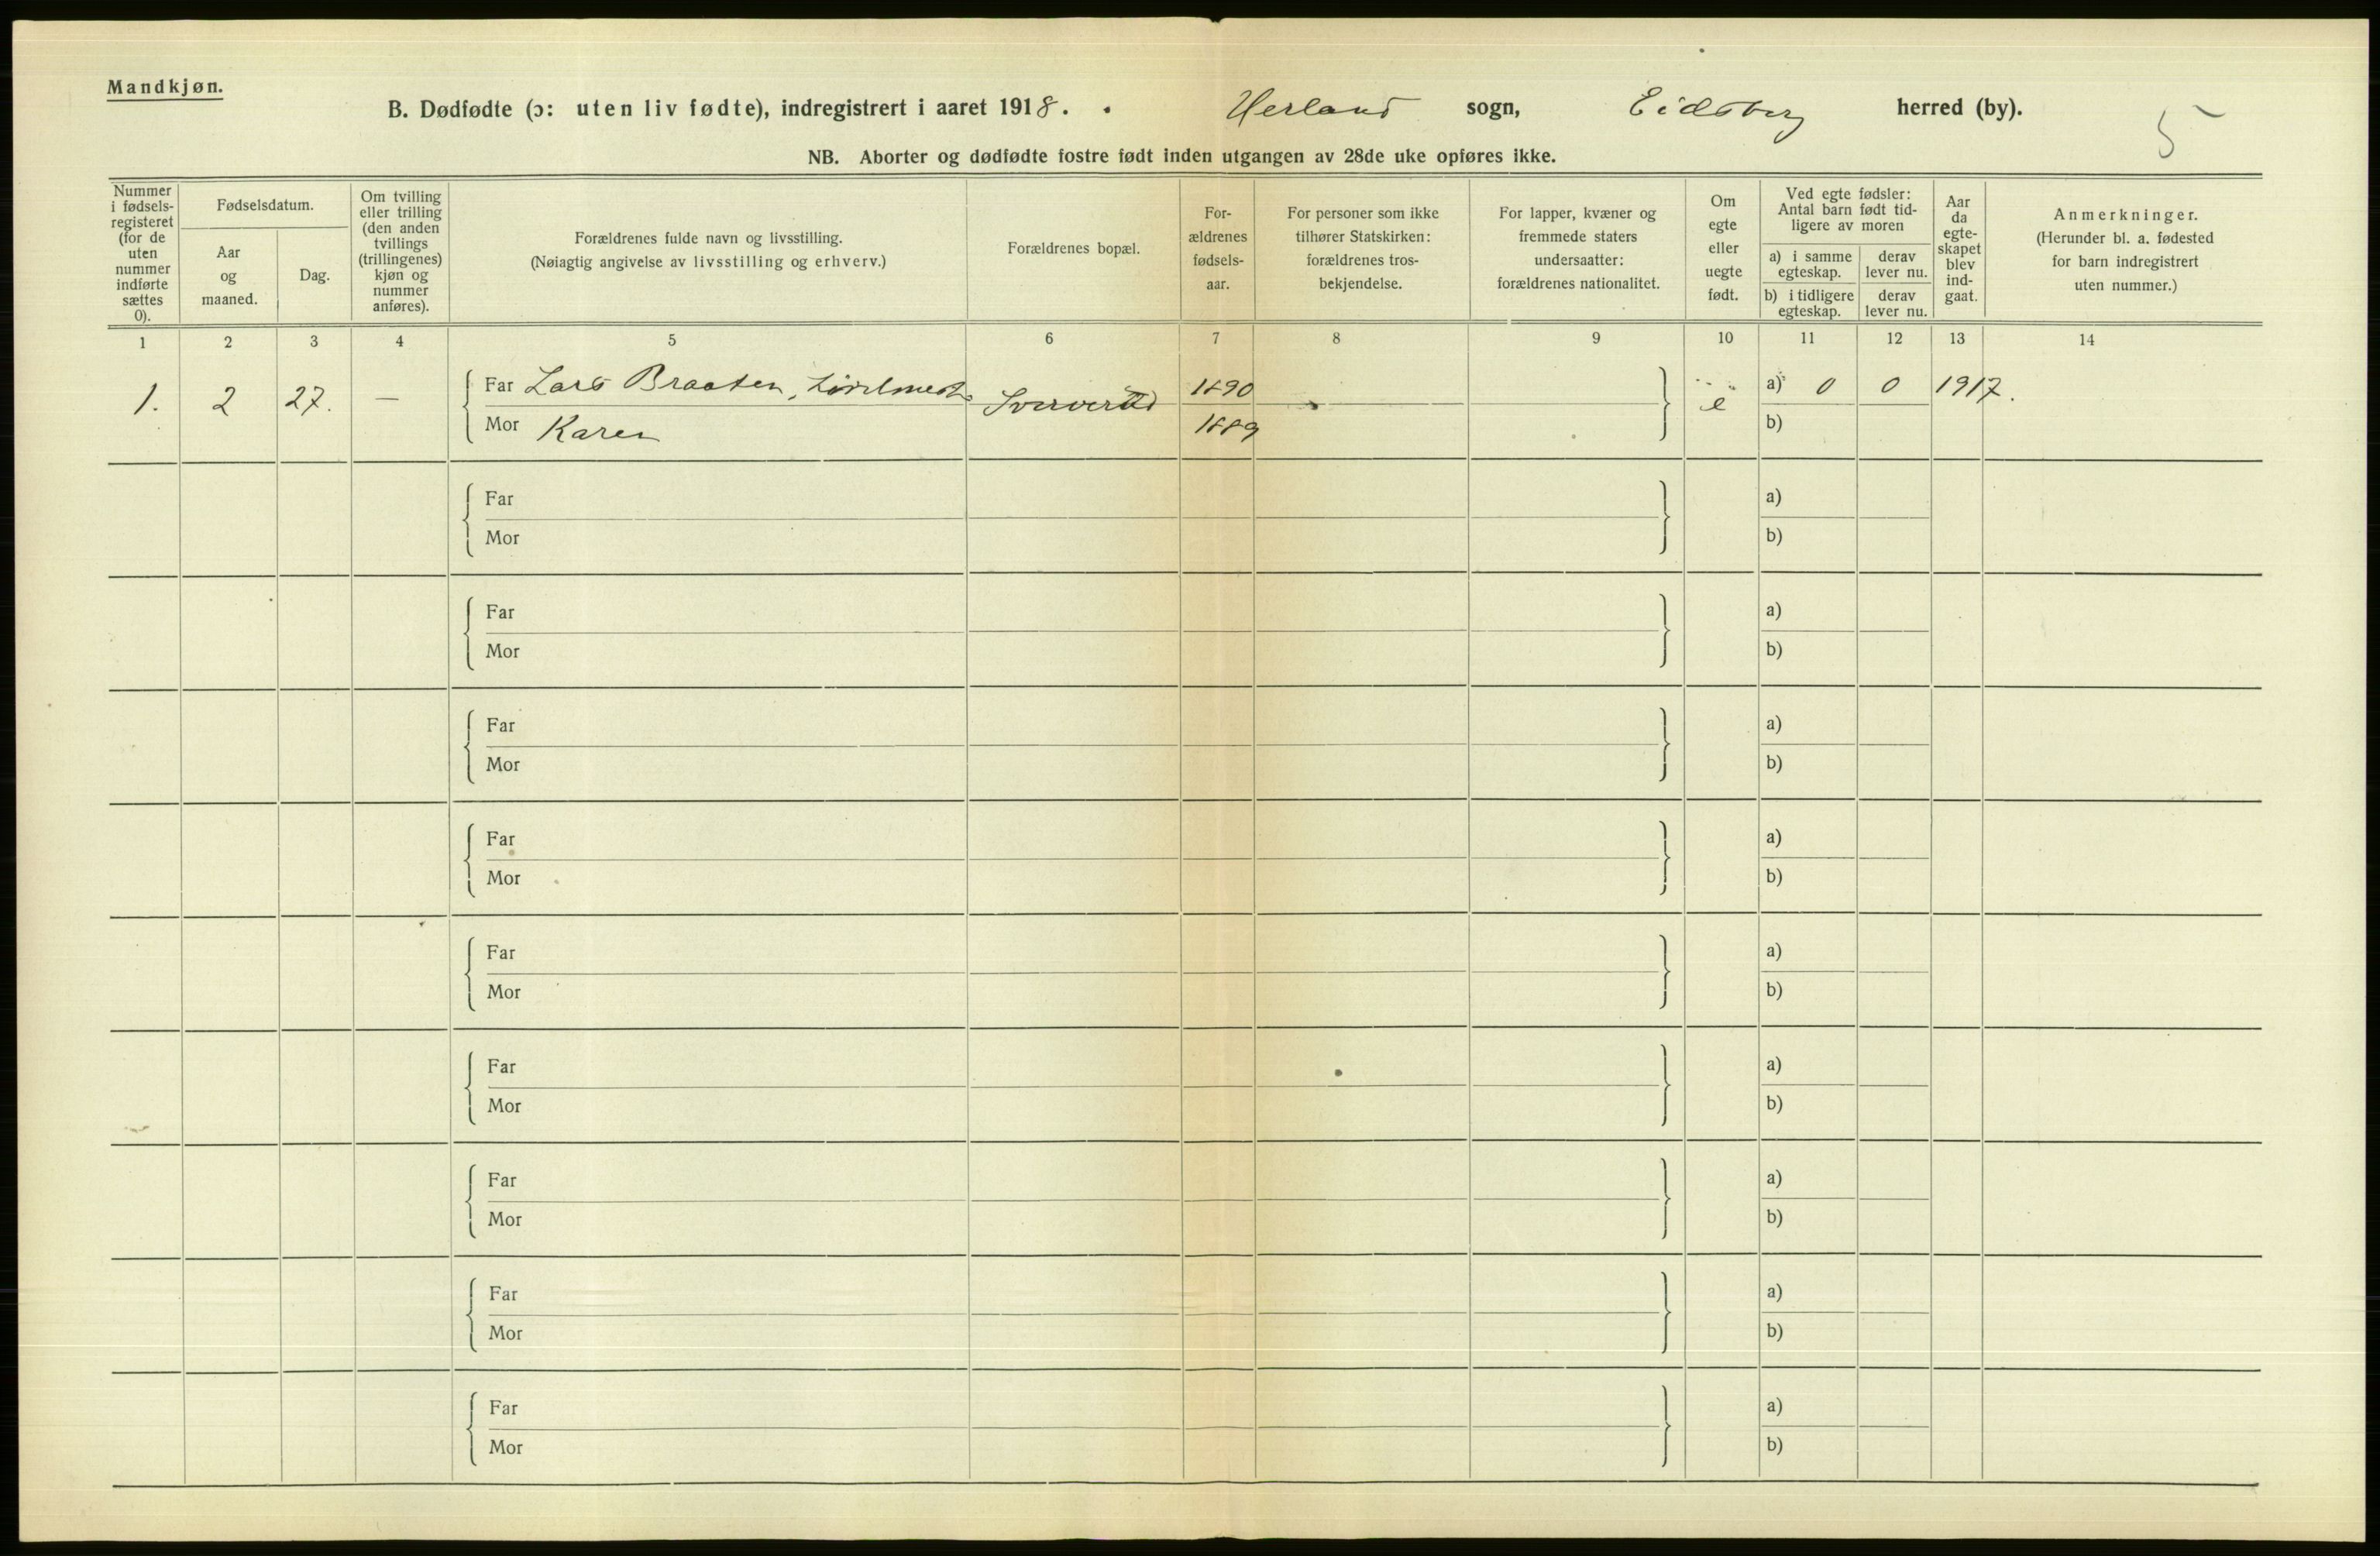 Mandkjøn.
B. Dødfødte (ɔ: uten liv fødte), indregistrert i aaret 1918. Herland sogn, Eidsberg herred (by).
5
NB. Aborter og dødfødte fostre født inden utgangen av 28de uke opføres ikke.
Nummer i fødsels-registeret (for de uten nummer indførte sættes 0).
Fødselsdatum.
Aar og maaned.
Dag.
Om tvilling eller trilling (den anden tvillings (trillingenes) kjøn og nummer anføres).
Forældrenes fulde navn og livsstilling.
(Nøiagtig angivelse av livsstilling og erhverv.)
Forældrenes bopæl.
For-ældrenes fødsels-aar.
For personer som ikke tilhører Statskirken: forældrenes tros-bekjendelse.
For lapper, kvæner og fremmede staters undersaatter: forældrenes nationalitet.
Om egte eller uegte født.
Ved egte fødsler: Antal barn født tid-ligere av moren
a) i samme egteskap.
derav lever nu.
b) i tidligere egteskap.
derav lever nu.
Aar da egte-skapet blev ind-gaat.
Anmerkninger.
(Herunder bl. a. fødested for barn indregistrert uten nummer.)
1 2 3 4 5 6 7 8 9 10 11 12 13 14
1. 2 27. — Far Lars Braaten, 1890 e a) 0 0 1917.
Mor Karen 1889 b)
Far a)
Mor b)
Far a)
Mor b)
Far a)
Mor b)
Far a)
Mor b)
Far a)
Mor b)
Far a)
Mor b)
Far a)
Mor b)
Far a)
Mor b)
Far a)
Mor b)